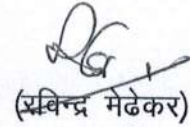 (रविन्द्र मेढेकर)